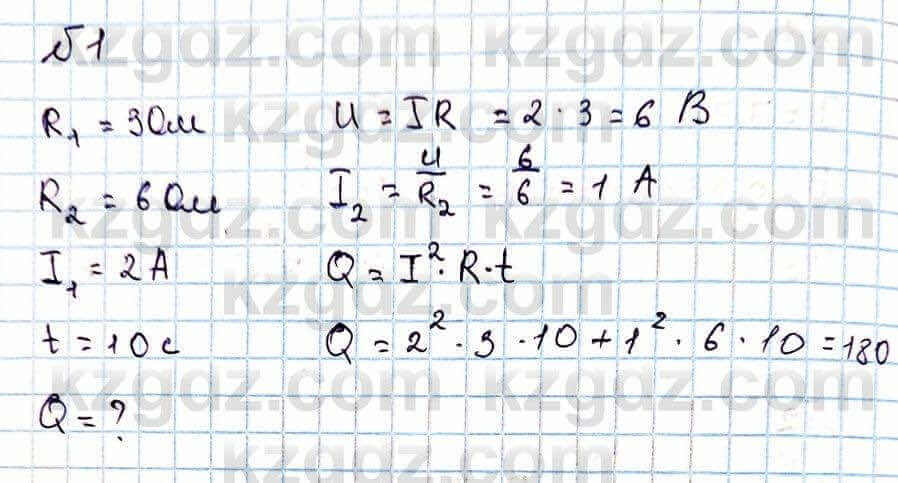 №1
R₁ = 3 Ом
R₂ = 6 Ом
I₁ = 2 А
t = 10 с
Q = ?
U = IR = 2 · 3 = 6 В
I₂ = U/R₂ = 6/6 = 1 А
Q = I² · R · t
Q = 2² · 3 · 10 + 1² · 6 · 10 = 180
kzgdz.com kzgdz.com
kzgdz.com kzgdz.com
kzgdz.com kzgdz.com
kzgdz.com
kzgdz.com kzgdz.com
kzgdz.com